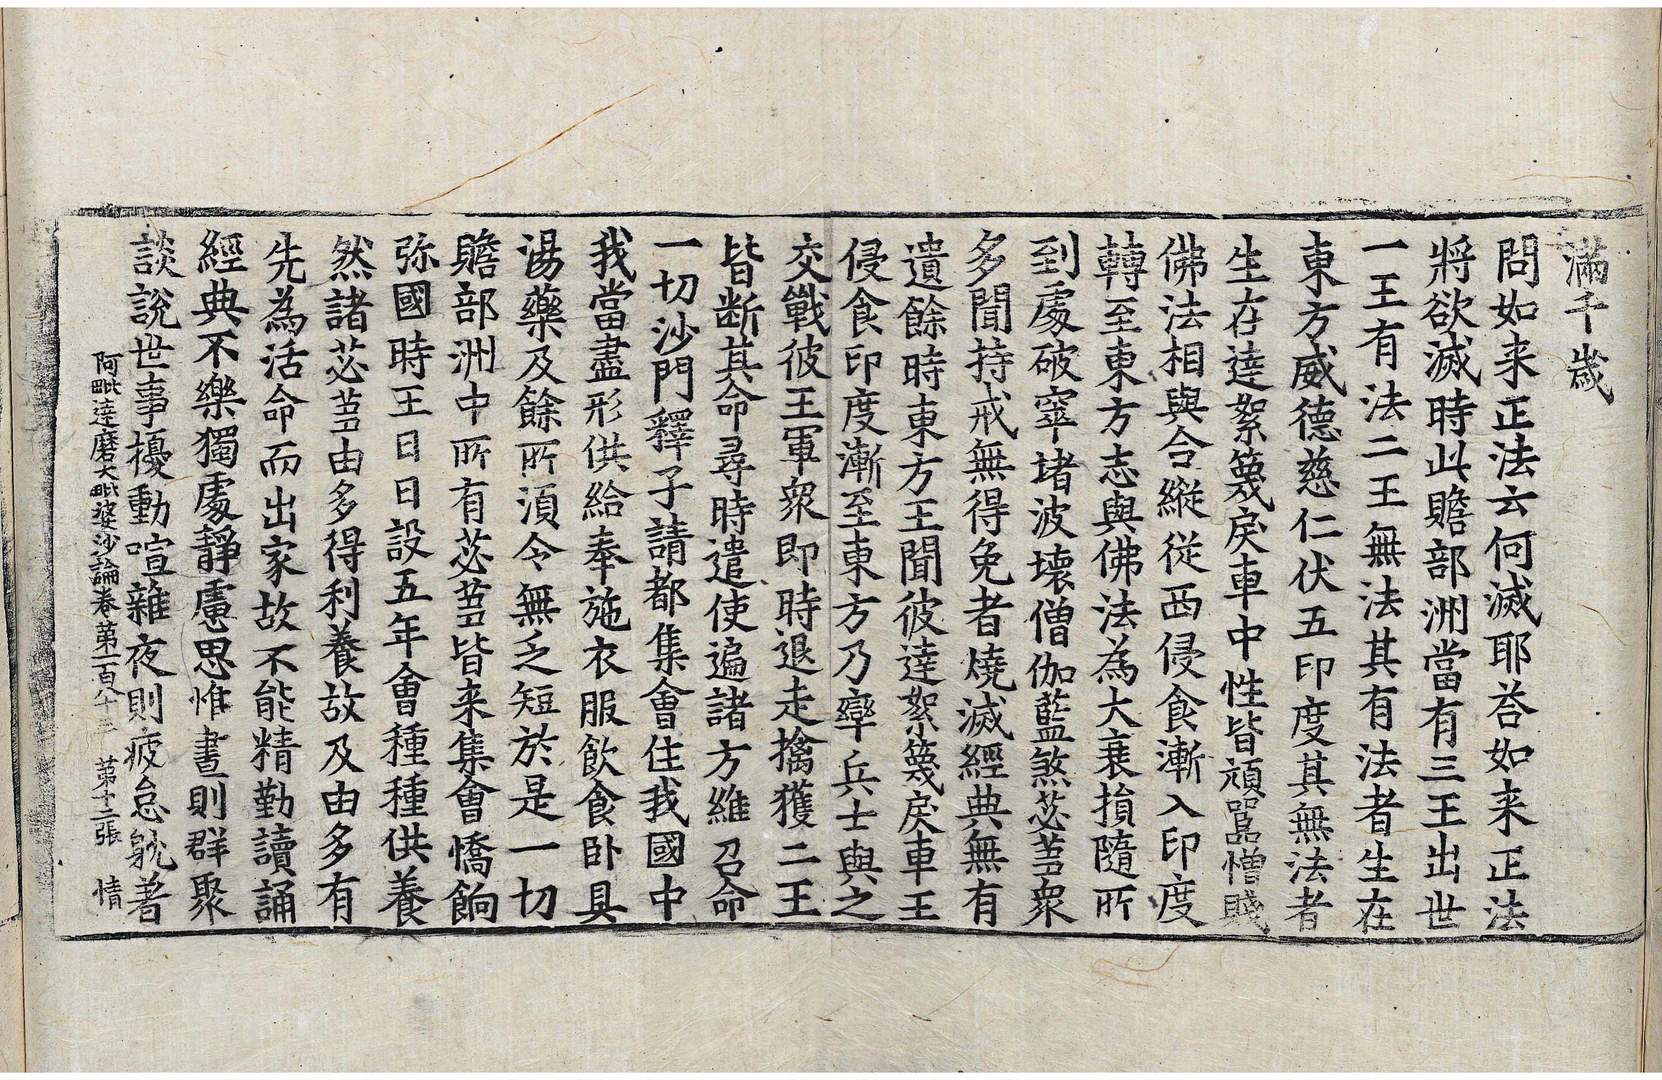 滿千歲
問如来正法云何滅耶荅如来正法
將欲滅時此贍部洲當有三王出世
一王有法二王無法其有法者生在
東方威德慈仁伏五印度其無法者
生在達絮篾戾車中性皆頑嚚憎賤
佛法相與合縱從西侵食漸入印度
轉至東方志與佛法為大衰損隨所
到處破窣堵波壞僧伽藍煞苾蒭衆
多聞持戒無得免者燒滅經典無有
遺餘時東方王聞彼達絮篾戾車王
侵食印度漸至東方乃率兵士與之
交戰彼王軍衆即時退走擒獲二王
皆断其命尋時遣使遍諸方維召命
一切沙門釋子請都集會住我國中
我當盡形供給奉施衣服飲食卧具
湯藥及餘所須令無乏短於是一切
贍部洲中所有苾蒭皆来集會憍餉
弥國時王日日設五年會種種供養
然諸苾蒭由多得利養故及由多有
先為活命而出家故不能精勤讀誦
經典不樂獨處靜慮思惟晝則群聚
談說世事擾動喧雜夜則疲怠躭著
阿毗達磨大毗婆沙論卷第一百八十三 第十二張 情